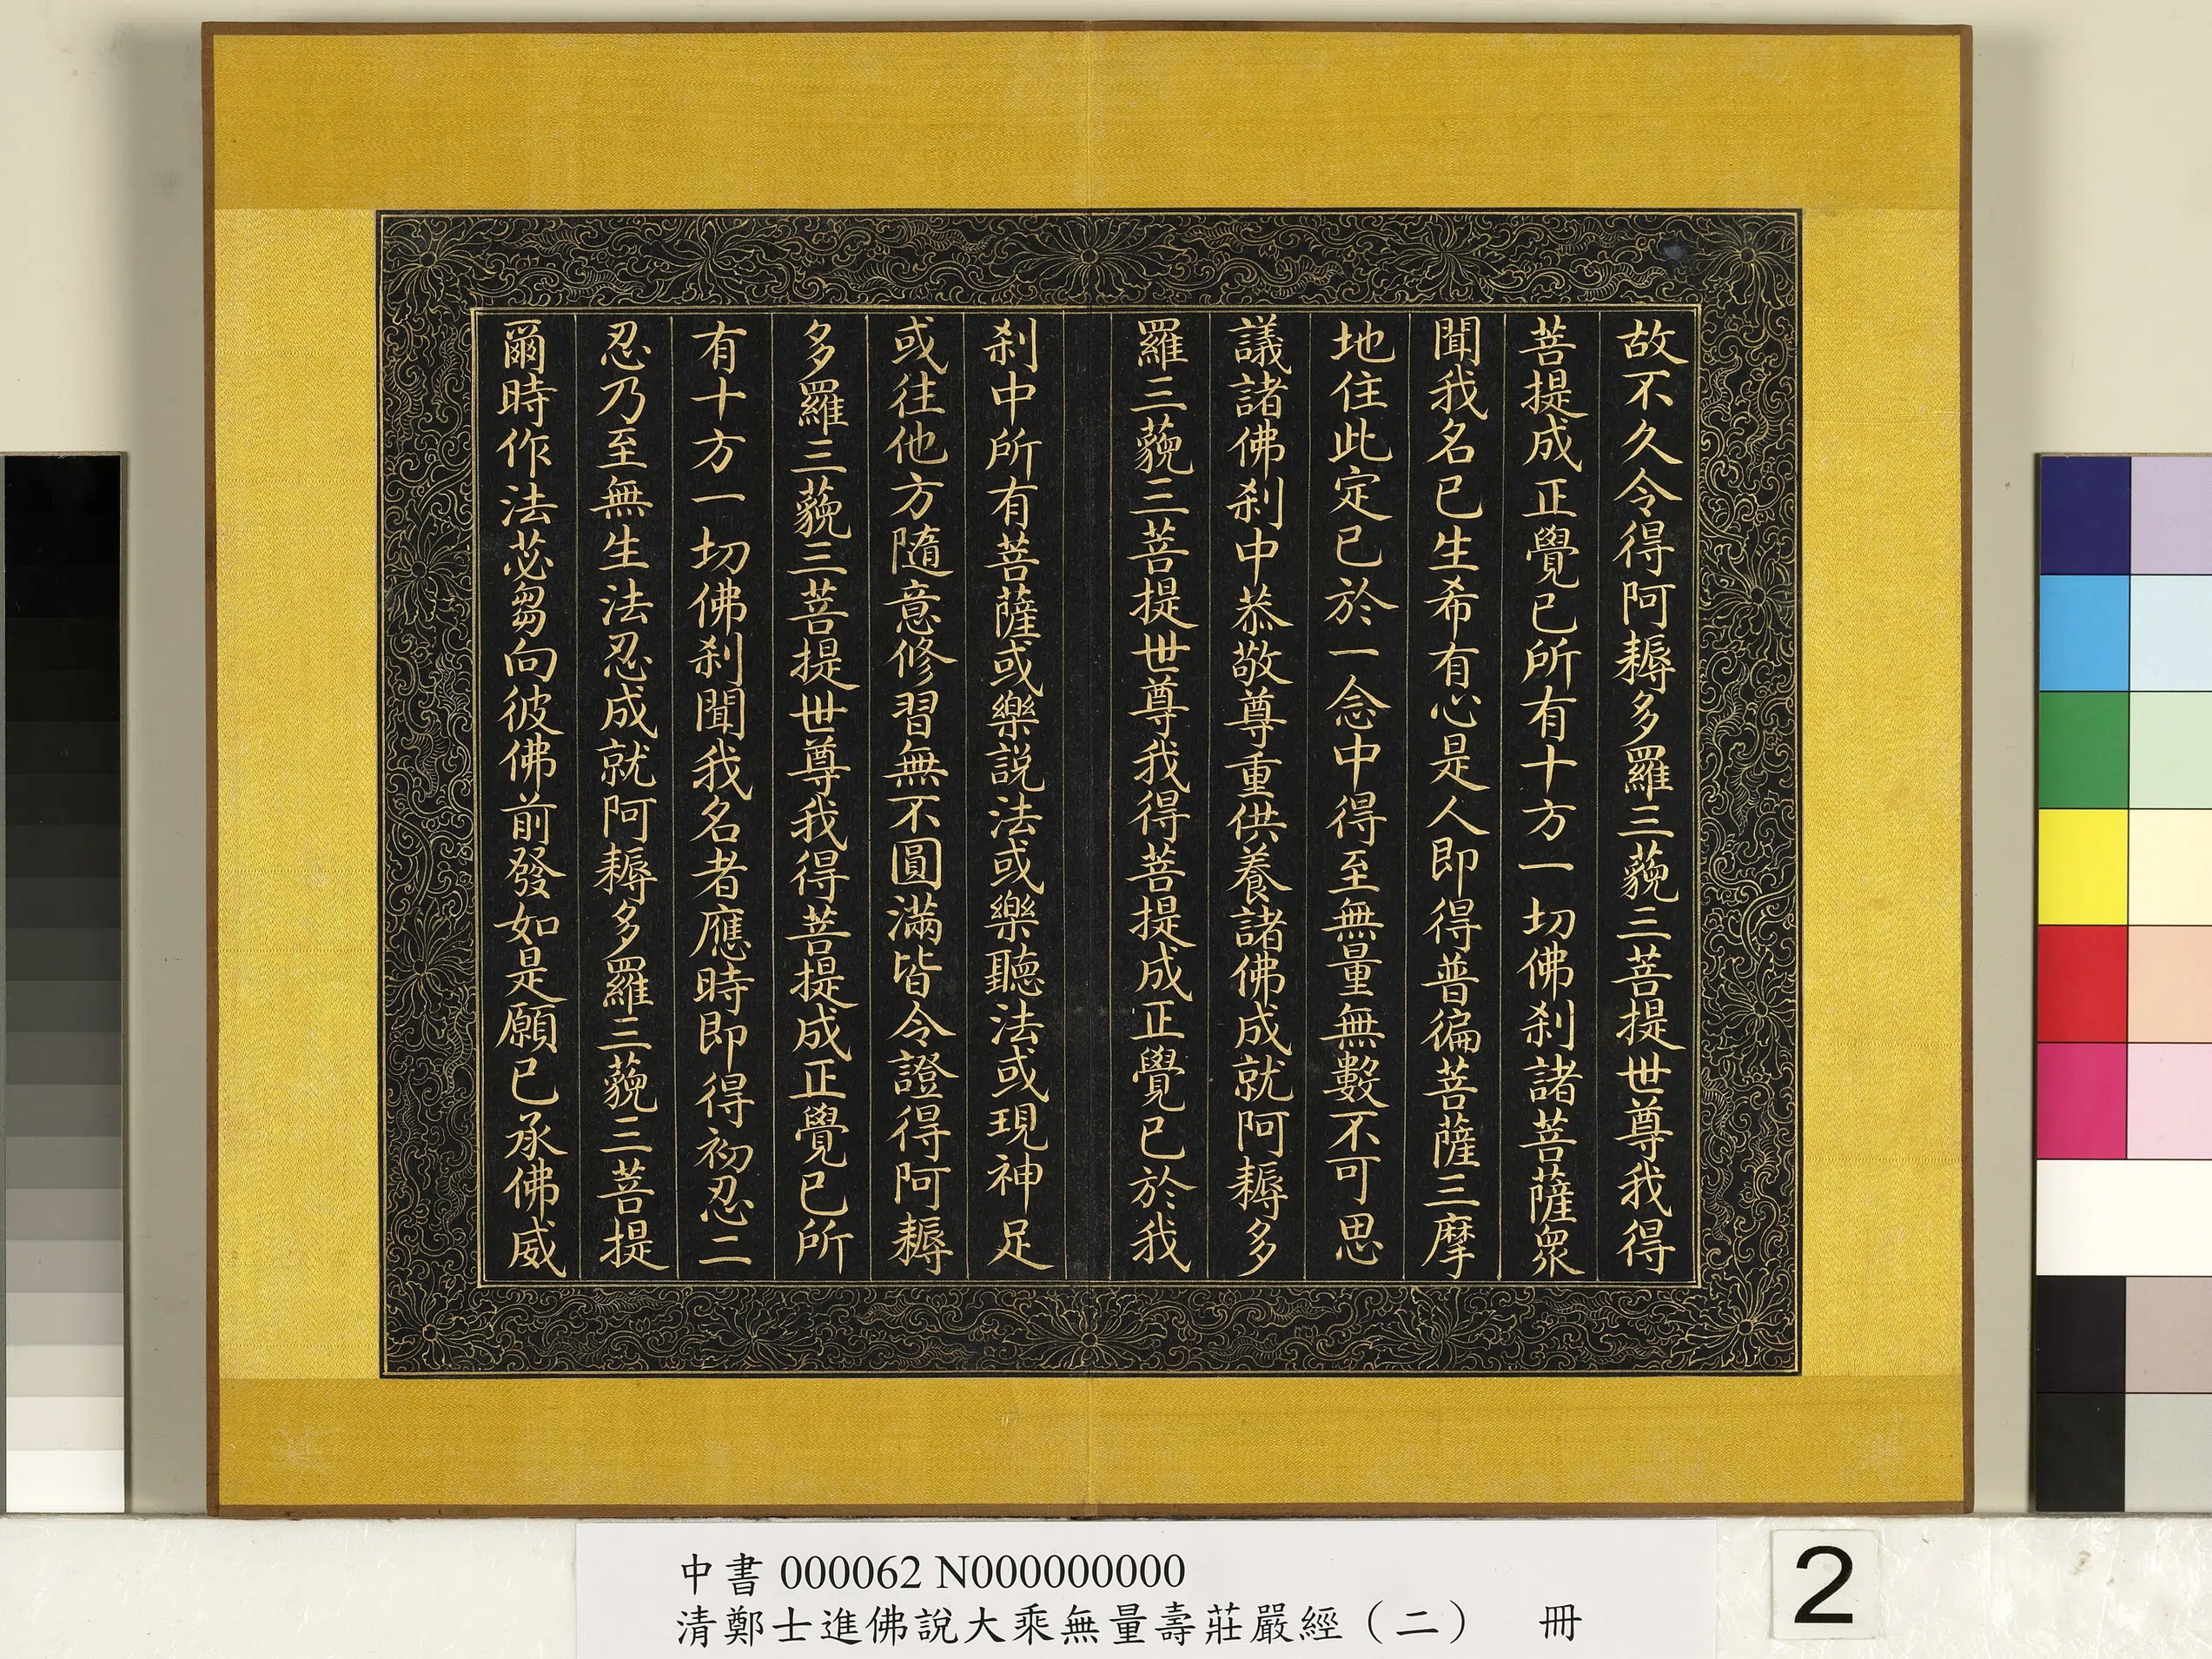 故不久令得阿耨多羅三藐三菩提世尊我得
菩提成正覺已所有十方一切佛刹諸菩薩衆
聞我名已生希有心是人即得普徧菩薩三摩
地住此定已於一念中得至無量無數不可思
議諸佛刹中恭敬尊重供養諸佛成就阿耨多
羅三藐三菩提世尊我得菩提成正覺已於我
刹中所有菩薩或樂説法或樂聽法或現神足
或往他方隨意修習無不圓滿皆令證得阿耨
多羅三藐三菩提世尊我得菩提成正覺已所
有十方一切佛刹聞我名者應時即得初忍二
忍乃至無生法忍成就阿耨多羅三藐三菩提
爾時作法苾芻向彼佛前發如是願已承佛威
中書 000062 N000000000
清鄭士進佛說大乘無量壽莊嚴經（二） 冊
2